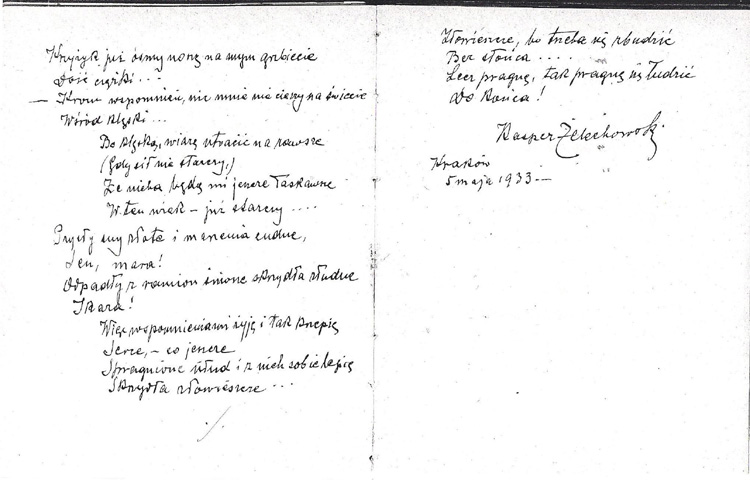 Krzyżyk już ósmy noszę na mym grzbiecie
Dość ciężki...
— Krom wspomnień, nic mnie nie cieszy na świecie
Wśród klęski...
Bo klęską, wiarę utracić na zawsze
(Gdy sił nie starczy,)
Że nieba będą mi jeszcze łaskawsze
W ten wiek – już starczy....
Prysły sny złote i marzenia cudne,
Sen, mara!
Odpadły z ramion śnione skrzydła złudne
Ikara!
Więc wspomnieniami żyję i tak krzepię
Serce, – co jeszcze
Spragnione ułud i z nich sobie lepię
Skrzydła złowieszcze...
Złowieszcze, bo trzeba się zbudzić
Bez słońca....
Lecz pragnę, tak pragnę się łudzić
Do końca!
Kasper Żelechowski
Kraków
5 maja 1933 —